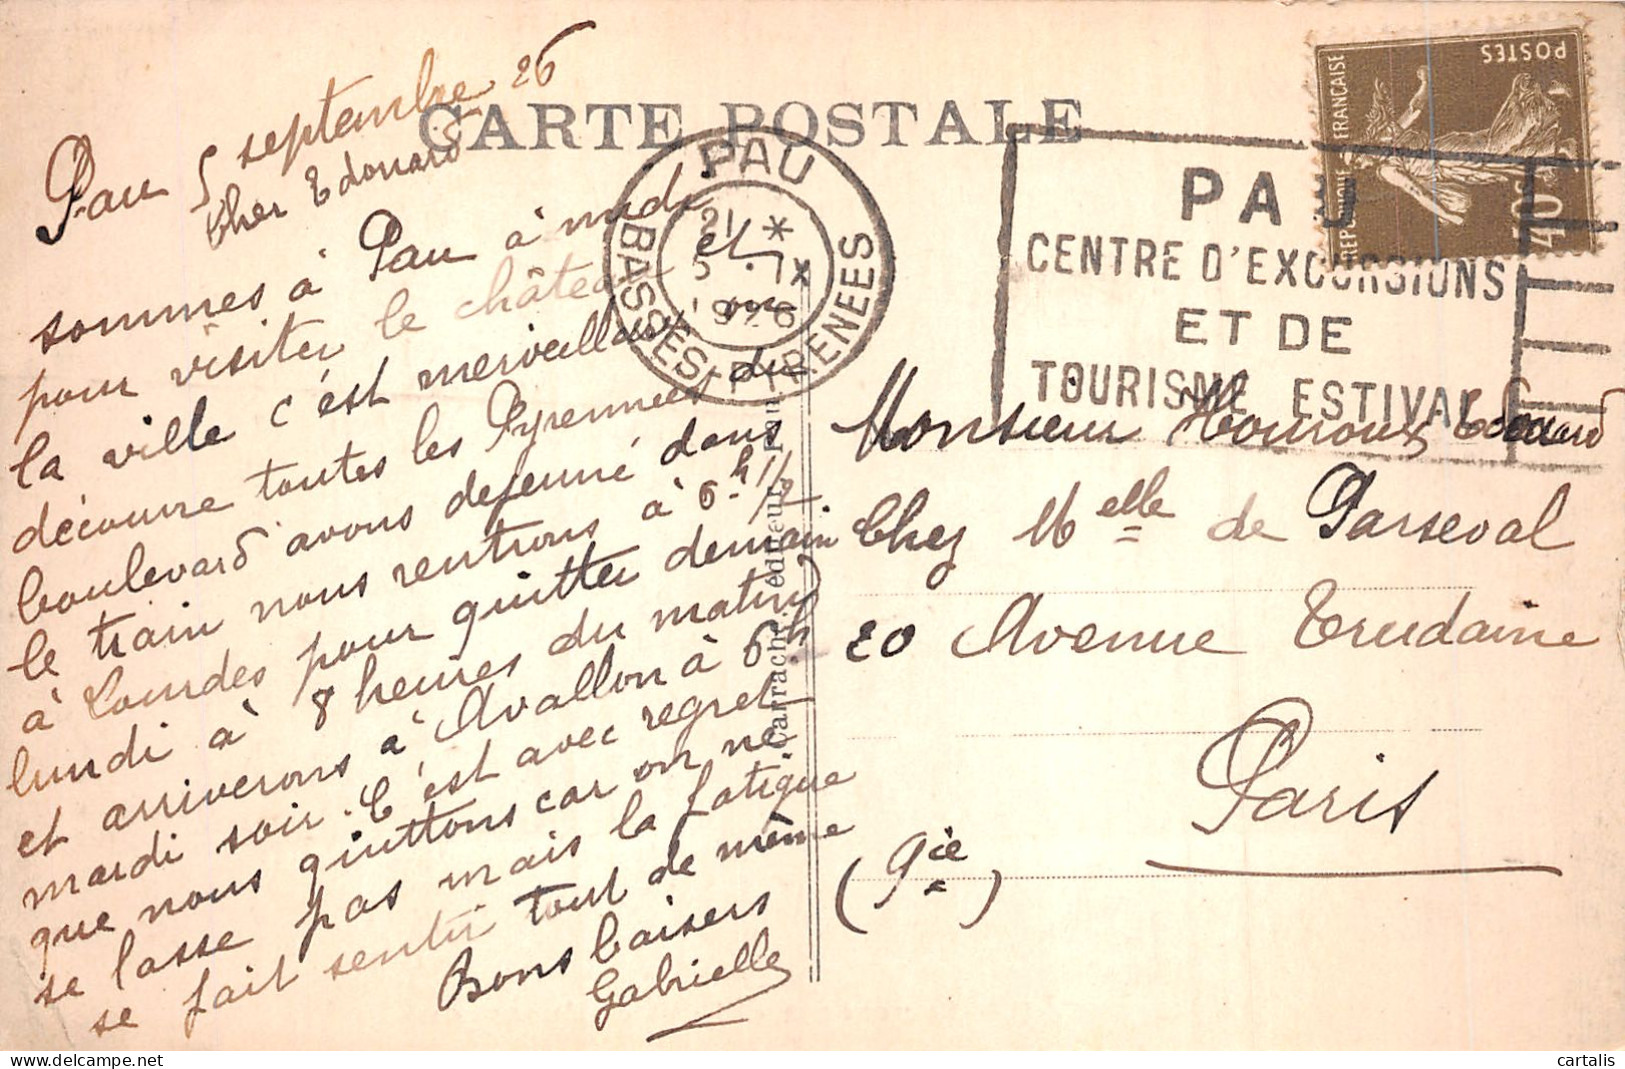 CARTE POSTALE
Pau 5 septembre 26
Cher Edouard
sommes à Pau à midi
pour visiter le château et
la ville c'est merveilleux on
découvre toutes les Pyrennées du
boulevard avons dejeuné dans
le train nous rentrons à 6h 1/2
à Lourdes pour quitter demain
lundi à 8 heures du matin
et arriverons à Avallon à 6h
mardi soir. C'est avec regret
que nous quittons car on ne
se lasse pas mais la fatigue
se fait sentir tout de même
Bons baisers
Gabrielle
Carrache, éditeur, Pau
PAU
21 *
5 IX
1926
BASSES-PYRENEES
PAU
CENTRE D'EXCURSIONS
ET DE
TOURISME ESTIVAL
REPUBLIQUE FRANCAISE
POSTES
40c
Monsieur Edouard
Chez Melle de Parseval
20 Avenue Trudaine
Paris
(9ie)
cartalis